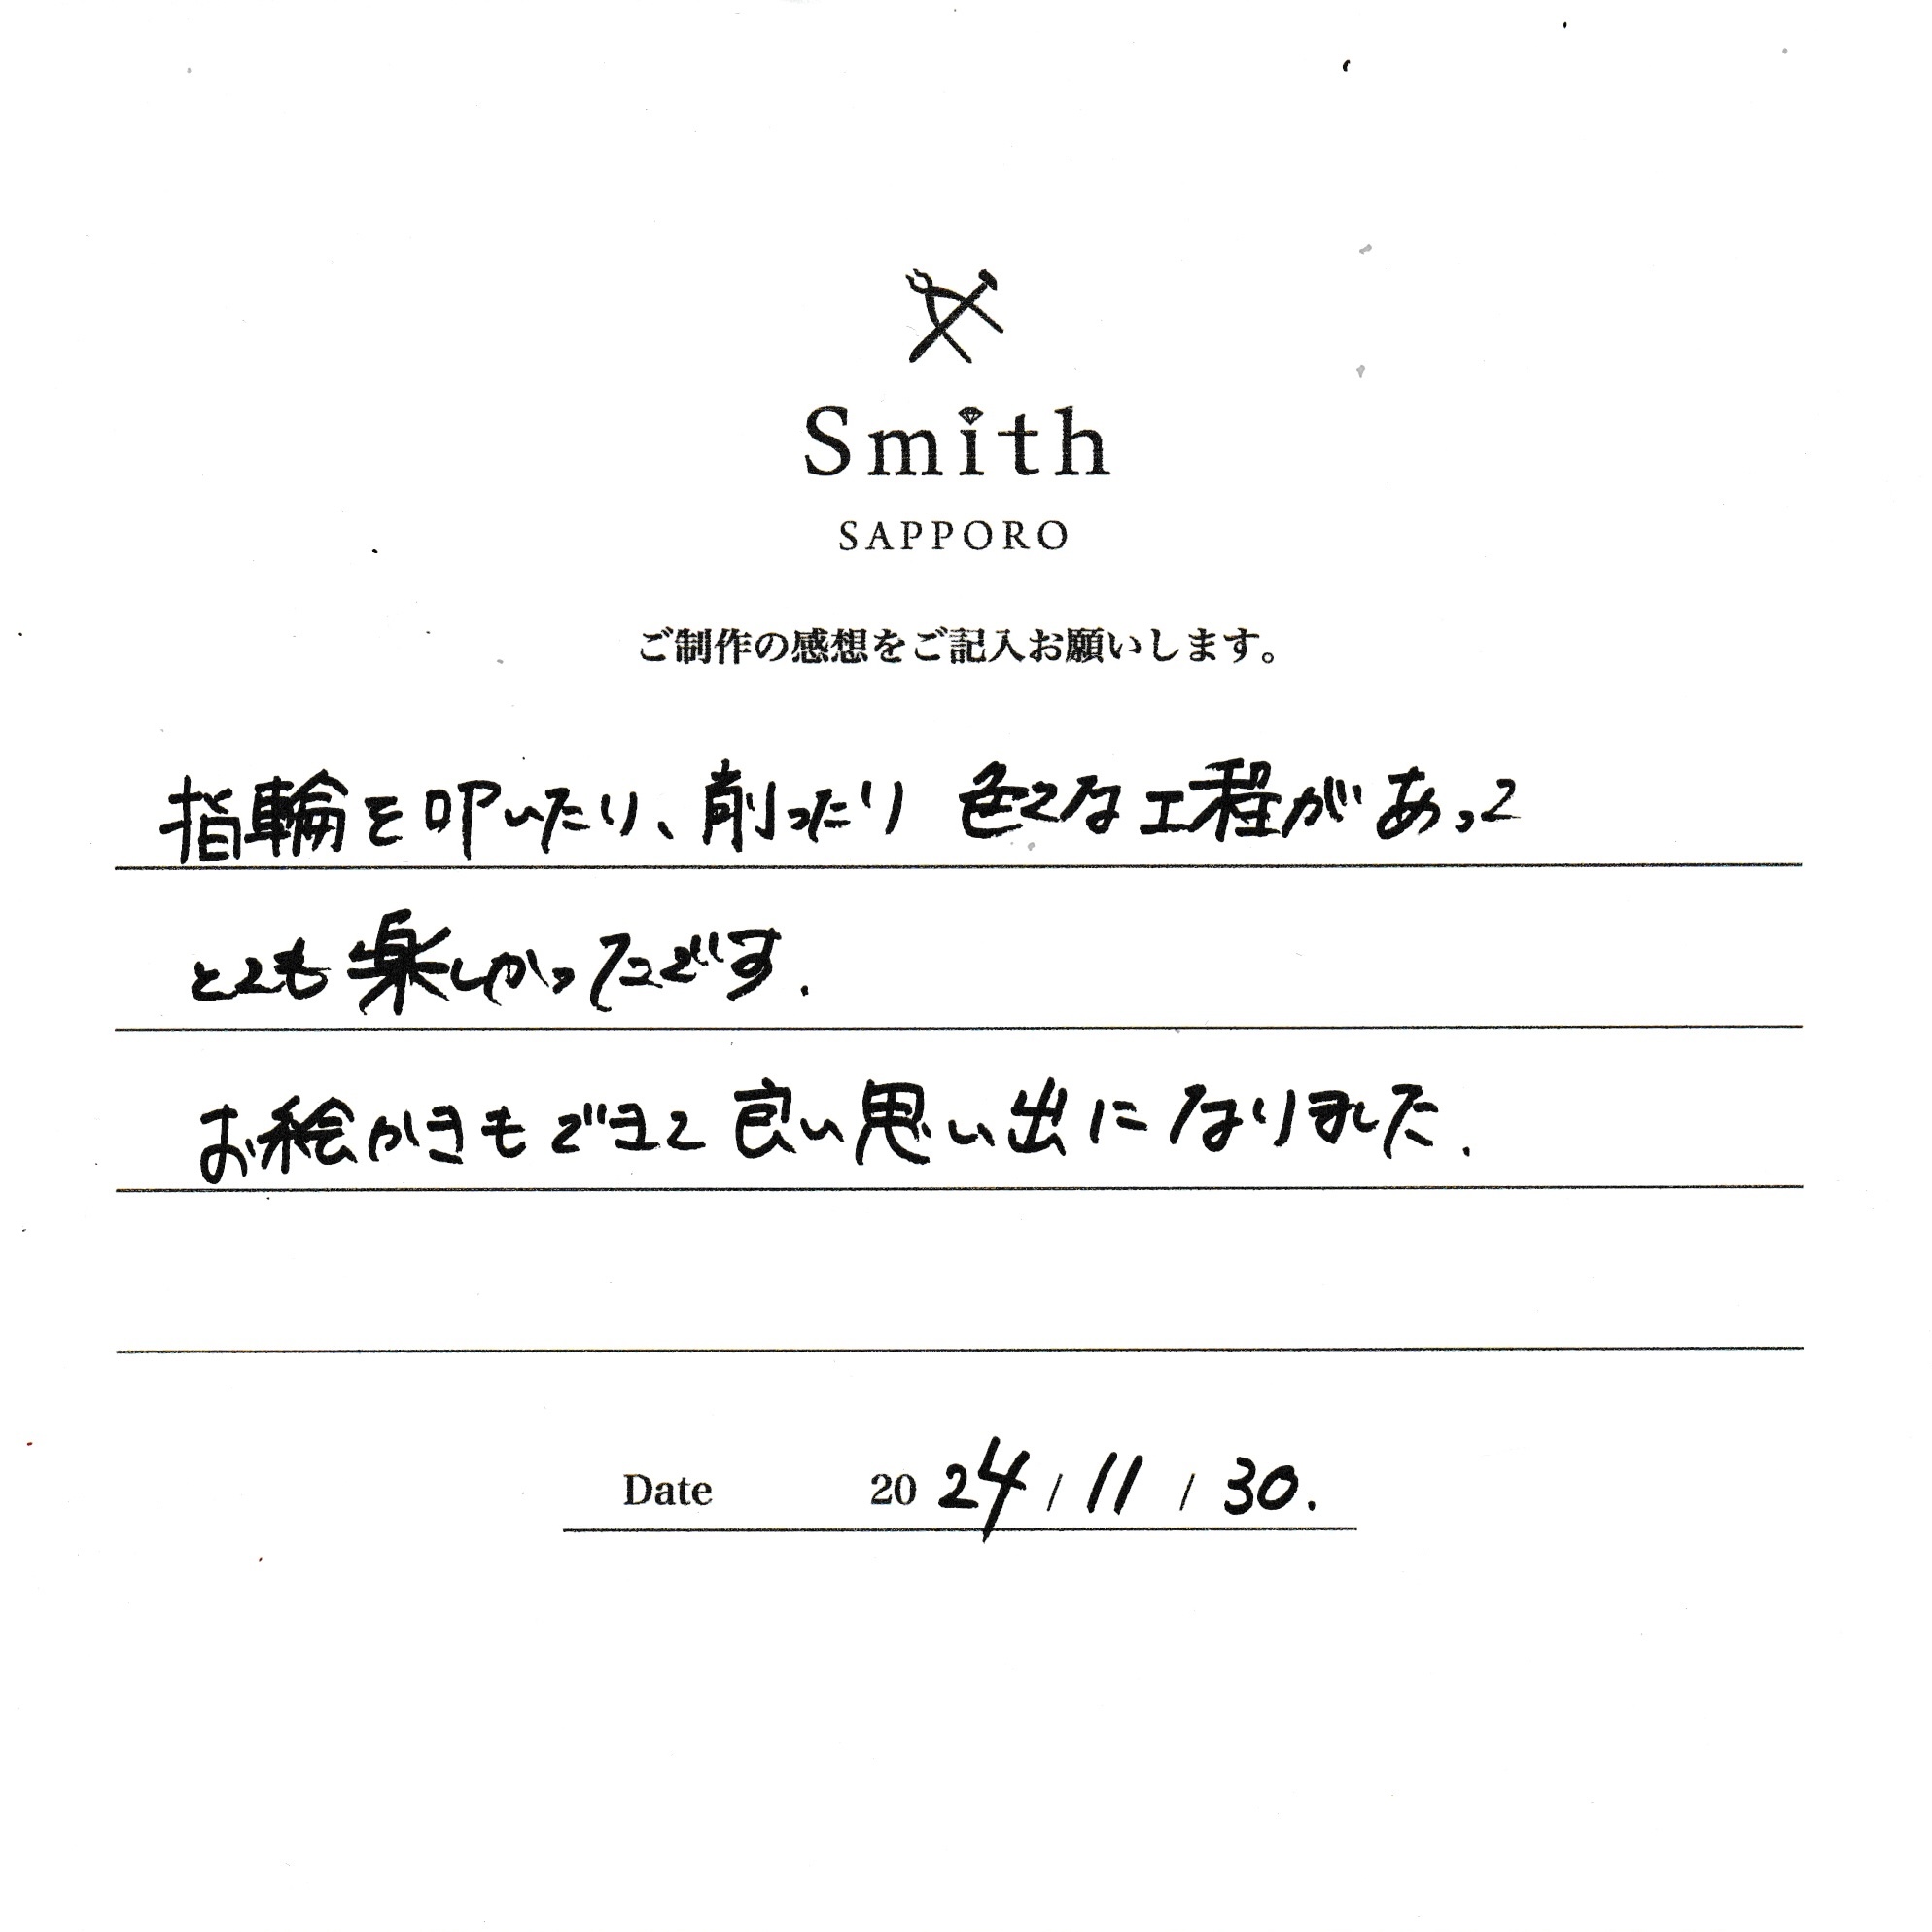 Smith
SAPPORO
ご制作の感想をご記入お願いします。
指輪を叩いたり、削ったり 色々な工程があって
とても楽しかったです.
お絵かきもできて良い思い出になりました.
Date 2024 / 11 / 30.